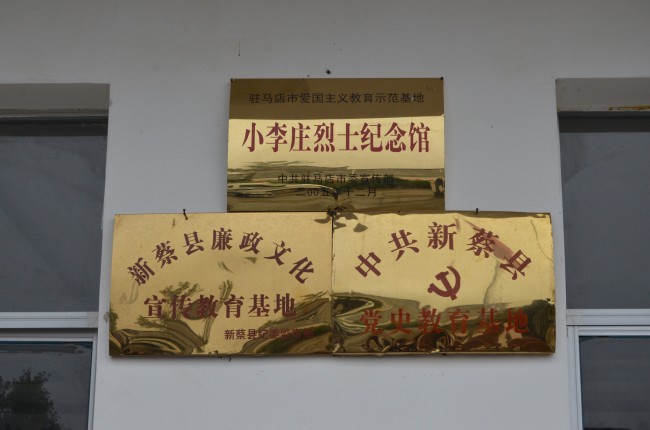 驻马店市爱国主义教育示范基地
小李庄烈士纪念馆
中共驻马店市委宣传部
二00五年十二月
新蔡县廉政文化
宣传教育基地
新蔡县纪
中共新蔡县
党史教育基地